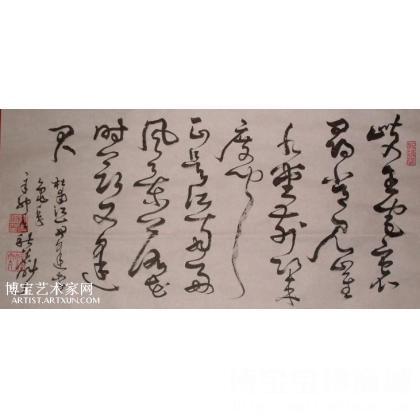 岐王宅裏
尋常見崔
九堂前幾
度聞
正是江南好
風景落花
時節又逢
君
杜甫江南逢李
龜年
博宝艺术家网
ARTIST.ARTXUN.COM